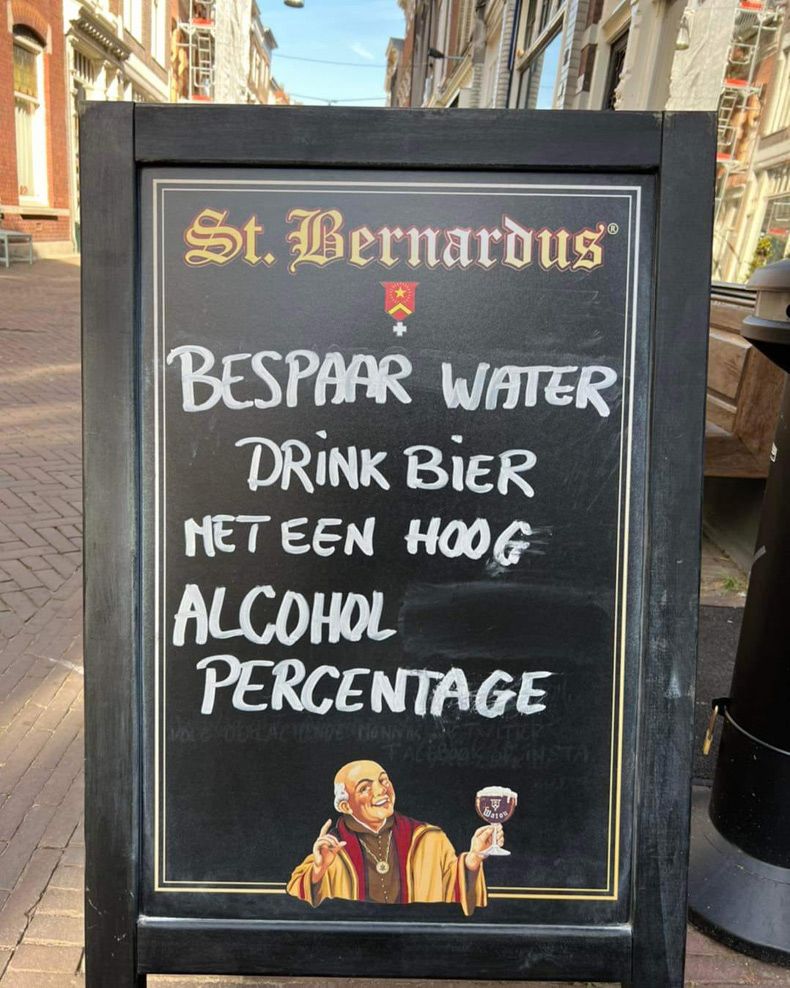 St. Bernardus®
BESPAAR WATER
DRINK BIER
MET EEN HOOG
ALCOHOL
PERCENTAGE
Watou